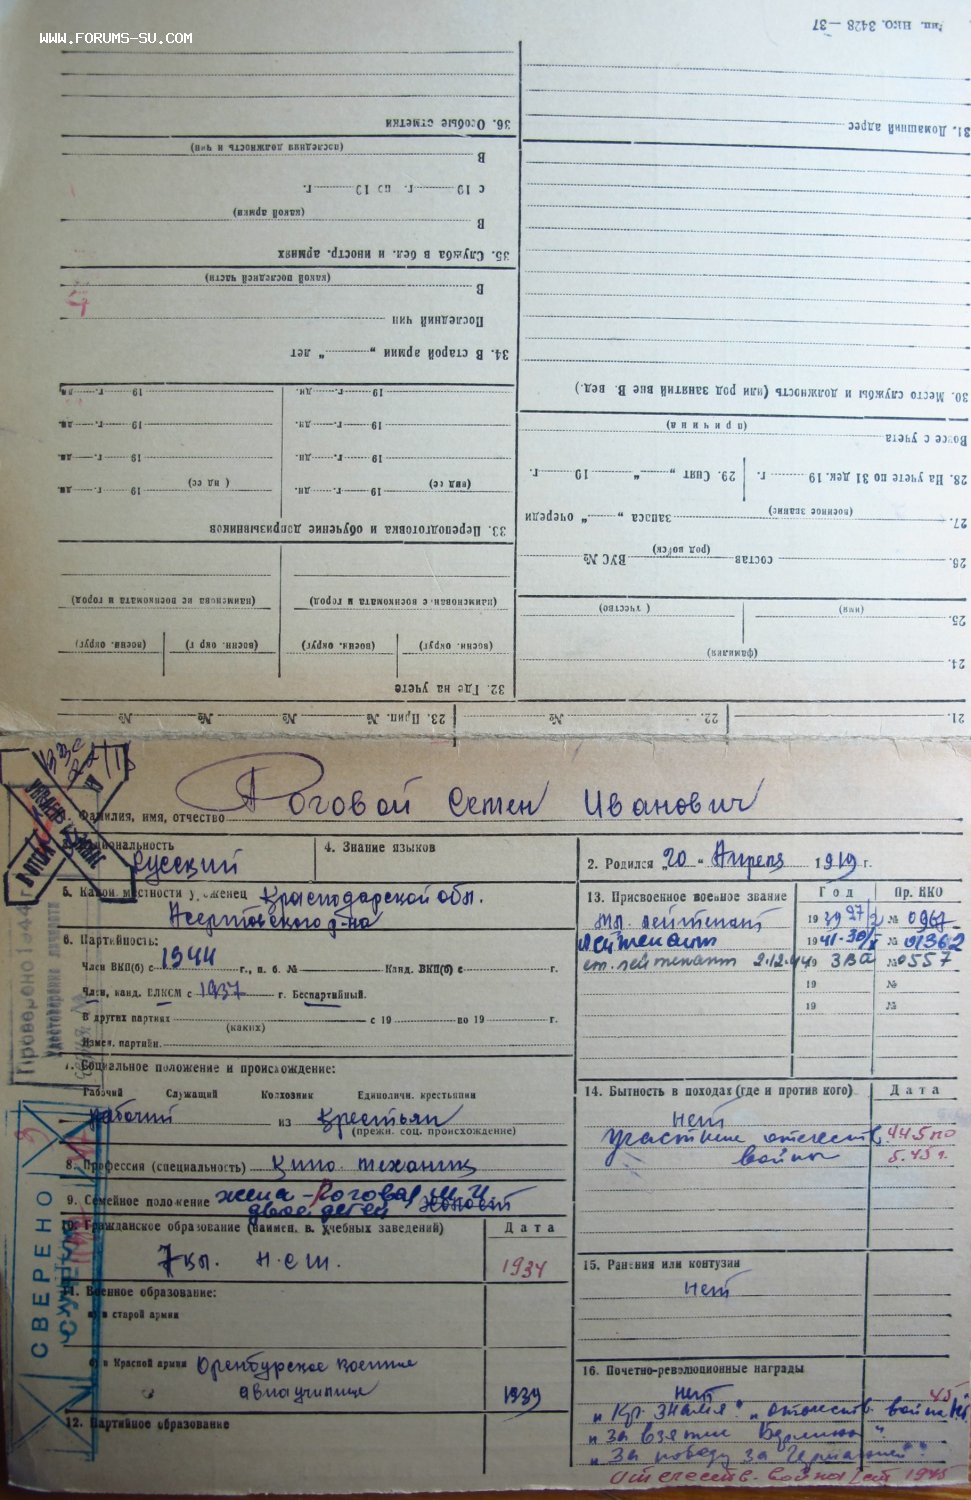 WWW.FORUMS-SU.COM
Тип. НКО. 3428—37
31. Домашний адрес
30. Место службы и должность (или род занятий вне В. вед.)
Вовсе с учета
(причина)
28. На учете по 31 дек. 19 г. 29. Снят „ “ 19 г.
27. запаса „ “ очереди
(военное звание)
26. состав ВУС №
(род войск)
25.
(имя) (отчество)
24.
(фамилия)
36. Особые отметки
(последняя должность и чин)
В
с 19 г. по 19 г.
(какой армии)
В
35. Служба в бел. и иностр. армиях
(какой последней части)
В
Последний чин
34. В старой армии „ “ лет
19 г. дн. 19 г. дн.
19 г. дн. 19 г. дн.
19 г. дн. 19 г. дн.
19 г. дн. 19 г. дн.
33. Переподготовка и обучение допризывников
(наименован. с военкомата и город) (наименова ие военкомата и город)
(военн. округ) (военн. округ) (военн. окр г) (военн. округ)
32. Где на учете
21. № 22. № 23. Прип. № № № №
Роговой Семен Иванович
Фамилия, имя, отчество
3. Национальность Русский
4. Знание языков
2. Родился „20“ Апреля 1919 г.
5. Какой местности уроженец Краснодарской обл.
р-на
6. Партийность:
Член ВКП(б) с 1944 г., п. б. № Канд. ВКП(б) с г.
Член, канд. ВЛКСМ с 1937 г. Беспартийный.
В других партиях с 19 по 19 г.
(каких)
Измен. партийн.
7. Социальное положение и происхождение:
Рабочий Служащий Колхозник Единоличн. крестьянин
рабочий из Крестьян
(прежн. соц. происхождение)
8. Профессия (специальность) Кино механик
9. Семейное положение жена - Роговая М. И.
двое детей холост
10. Гражданское образование (наимен. в. учебных заведений) Дата
7 кл. н.с.ш. 1934
11. Военное образование:
а) в старой армии
б) в Красной армии Оренбургское военное
авиаучилище 1939
12. Партийное образование
13. Присвоенное военное звание Год Пр. НКО
мл. лейтенант 1939 27/2 № 0967
лейтенант 1941-30/X № 01362
ст. лейтенант 2.12.44 3ВА № 0557
19 №
19 №
14. Бытность в походах (где и против кого) Дата
нет
участник отечеств. 44.5 по
войны 5.45 г.
15. Ранения или контузии
нет
16. Почетно-революционные награды
нет 45
„Кр. Знамя“. „отечеств. война
„За взятие Берлина“.
„За победу за Германией“.
Отечеств. война 1 ст 1945
Проверено 1944 г.
Удостоверение личности
СВЕРЕНО